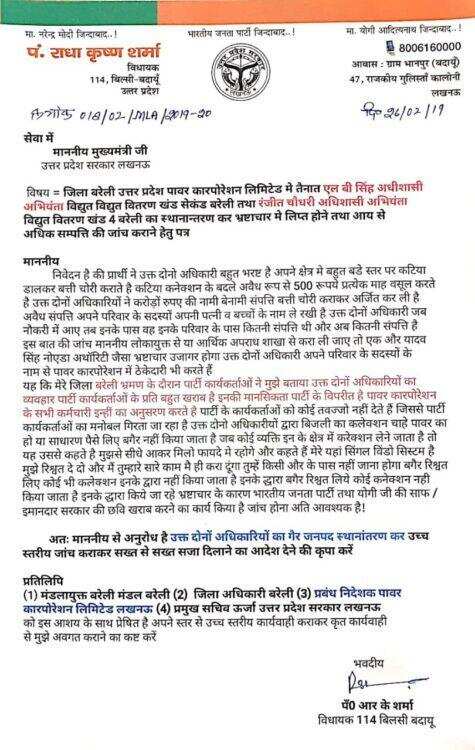 मा. नरेन्द्र मोदी जिन्दाबाद..!
भारतीय जनता पार्टी जिन्दाबाद..!
मा. योगी आदित्यनाथ जिन्दाबाद..!
पं. राधा कृष्ण शर्मा
विधायक
114, बिल्सी-बदायूँ
उत्तर प्रदेश
8006160000
आवास : ग्राम भानपुर (बदायूँ)
47, राजकीय गुलिस्ताँ कालोनी
लखनऊ
018/02/MLA/2019-20
26/02/19
सेवा में
माननीय मुख्यमंत्री जी
उत्तर प्रदेश सरकार लखनऊ
विषय = जिला बरेली उत्तर प्रदेश पावर कारपोरेशन लिमिटेड मे तैनात एल बी सिंह अधीशासी
अभियंता विद्युत विद्युत वितरण खंड सेकंड बरेली तथा रंजीत चौधरी अधिशासी अभियंता
विद्युत वितरण खंड 4 बरेली का स्थानान्तरण कर भ्रष्टाचार मे लिप्त होने तथा आय से
अधिक सम्पत्ति की जांच कराने हेतु पत्र
माननीय
निवेदन है की प्रार्थी ने उक्त दोनो अधिकारी बहुत भरष्ट है अपने क्षेत्र मे बहुत बडे स्तर पर कटिया
डालकर बत्ती चोरी कराते है कटिया कनेक्शन के बदले अवैध रूप से 500 रूपये प्रत्येक माह वसूल करते
है उक्त दोनों अधिकारियों ने करोड़ों रुपए की नामी बेनामी संपत्ति बत्ती चोरी कराकर अर्जित कर ली है
अवैध संपत्ति अपने परिवार के सदस्यों अपनी पत्नी व बच्चों के नाम ले रखी है उक्त दोनों अधिकारी जब
नौकरी में आए तब इनके पास वह इनके परिवार के पास कितनी संपत्ति थी और अब कितनी संपत्ति है
इस बात की जांच माननीय लोकायुक्त से या आर्थिक अपराध शाखा से करा ली जाए तो एक और यादव
सिंह नोएडा अथॉरिटी जैसा भ्रष्टाचार उजागर होगा उक्त दोनों अधिकारी अपने परिवार के सदस्यों के
नाम से पावर कारपोरेशन में ठेकेदारी भी करते हैं
यह कि मेरे जिला बरेली भ्रमण के दौरान पार्टी कार्यकर्ताओं ने मुझे बताया उक्त दोनों अधिकारियों का
व्यवहार पार्टी कार्यकर्ताओं के प्रति बहुत खराब है इनकी मानसिकता पार्टी के विपरीत है पावर कारपोरेशन
के सभी कर्मचारी इन्हीं का अनुसरण करते है पार्टी के कार्यकर्ताओं को कोई तवज्जो नहीं देते हैं जिससे पार्टी
कार्यकर्ताओं का मनोबल गिरता जा रहा है उक्त दोनो अधिकारीयों द्वारा बिजली का कलेवशन चाहे पावर का
हो या साधारण पैसे लिए बगैर नहीं किया जाता है जब कोई व्यक्ति इन के क्षेत्र में करेक्शन लेने जाता है तो
यह उससे कहते है मुझसे सीधे आकर मिलो फायदे मे रहोगे और कहते हैं मेरे यहां सिंगल विंडो सिस्टम है
मुझे रिश्वत दे दो और मैं तुम्हारे सारे काम मै ही करा दूंगा तुम्हें किसी और के पास नहीं जाना होगा बगैर रिश्वत
लिए कोई भी कलेक्शन इनके द्वारा नहीं किया जाता है इनके द्धारा बगैर रिश्वत लिये कोई कनेक्शन नही
किया जाता है इनके द्धारा किये जा रहे भ्रष्टाचार के कारण भारतीय जनता पार्टी तथा योगी जी की साफ /
इमानदार सरकार की छवि खराब करने का कार्य किया है जांच होना अति आवश्यक है!
अतः माननीय से अनुरोध है उक्त दोनों अधिकारियों का गैर जनपद स्थानांतरण कर उच्च
स्तरीय जांच कराकर सख्त से सख्त सजा दिलाने का आदेश देने की कृपा करें
प्रतिलिपि
(1) मंडलायुक्त बरेली मंडल बरेली (2) जिला अधिकारी बरेली (3) प्रबंध निदेशक पावर
कारपोरेशन लिमिटेड लखनऊ (4) प्रमुख सचिव ऊर्जा उत्तर प्रदेश सरकार लखनऊ
को इस आशय के साथ प्रेषित है अपने स्तर से उच्च स्तरीय कार्यवाही कराकर कृत कार्यवाही
से मुझे अवगत कराने का कष्ट करें
भवदीय
पँ0 आर के शर्मा
विधायक 114 बिलसी बदायू